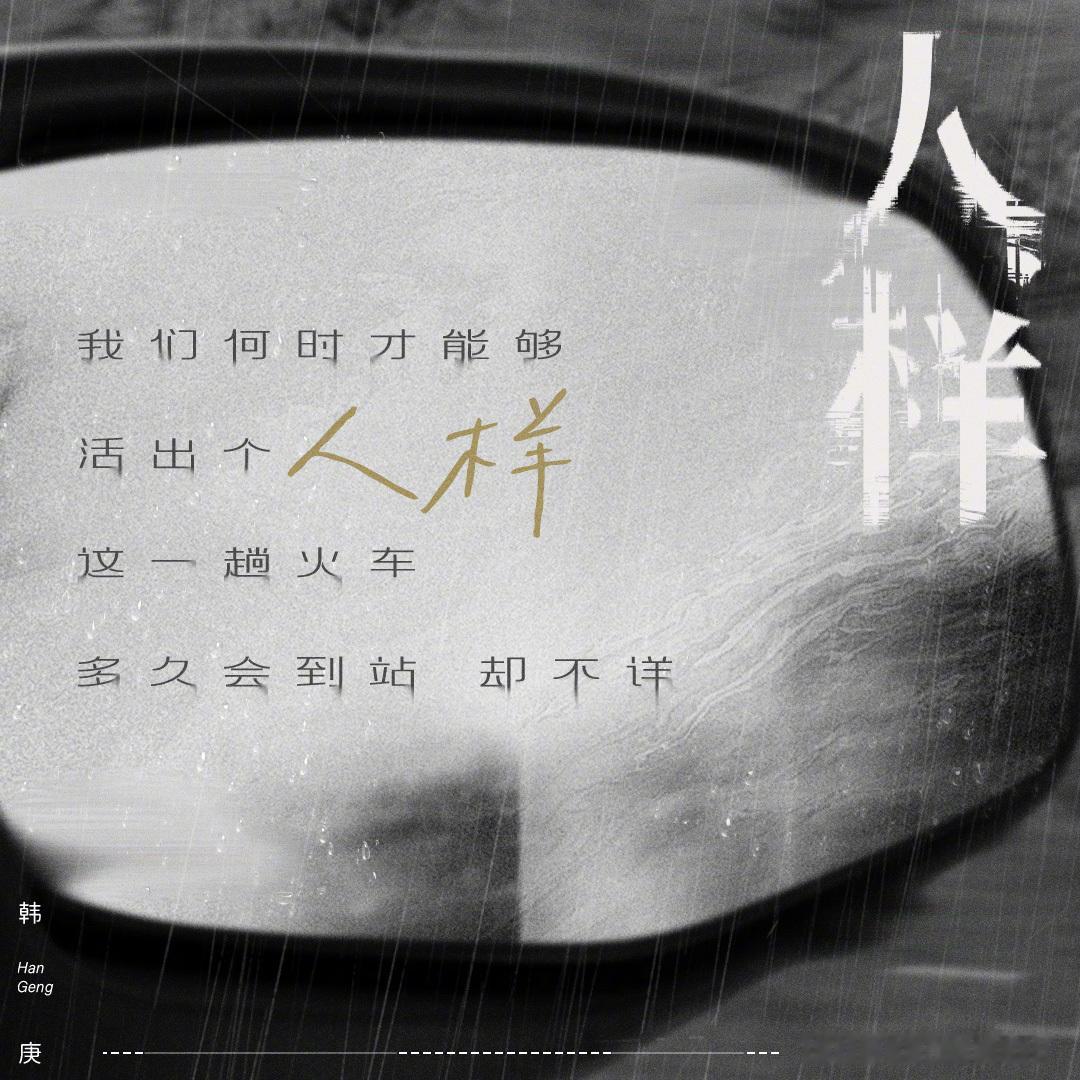 人样
我们何时才能够
活出个人样
这一趟火车
多久会到站 却不详
韩
Han
Geng
庚